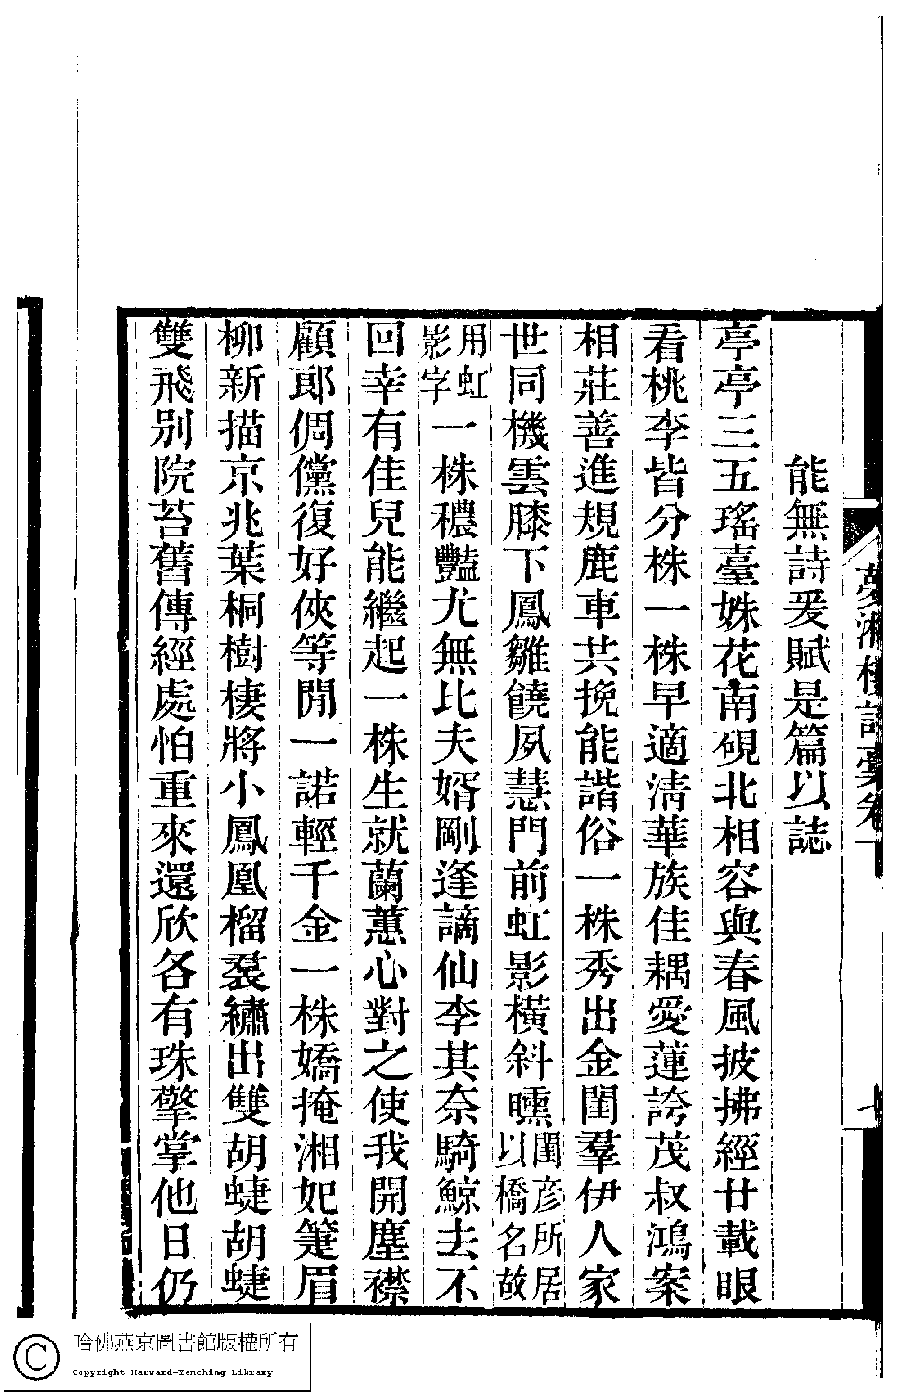 能無詩爰賦是篇以誌
亭亭三五瑤臺姝花南硯北相容與春風披拂經廿載眼
看桃李皆分株一株早適清華族佳耦愛蓮誇茂叔鴻案
相莊善進規鹿車共挽能諧俗一株秀出金閨羣伊人家
世同機雲膝下鳳雛饒夙慧門前虹影橫斜曛閨彥所居以橋名故
用虹影字一株穠豔尤無比夫婿剛逢謫仙李其奈騎鯨去不
回幸有佳兒能繼起一株生就蘭蕙心對之使我開塵襟
顧郎倜儻復好俠等閒一諾輕千金一株嬌掩湘妃箑眉
柳新描京兆葉桐樹棲將小鳳凰榴裠繡出雙胡蜨胡蜨
雙飛別院苔舊傳經處怕重來還欣各有珠擎掌他日仍
夢湘樓詩稾卷一
哈佛燕京圖書館版權所有
Copyright Harvard-Yenching Library